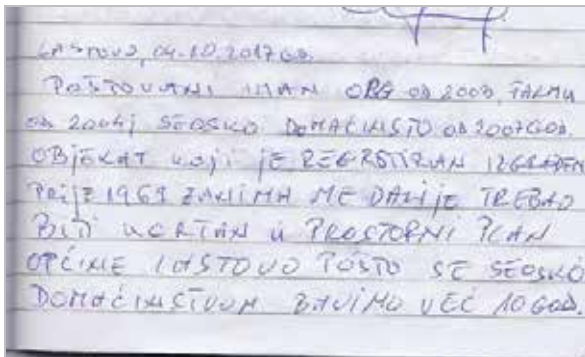 LASTOVO, 04.10.2017 GOD.
POŠTOVANI IMAM OPG OD 2003, FARMU
OD 2004 I SEOSKO DOMAĆINSTO OD 2007 GOD.
OBJEKAT KOJI JE REGRSTIRAN IZGRAĐEN
PRIJE 1969 ZANIMA ME DALI JE TREBAO
BITI UCRTAN U PROSTORNI PLAN
OPĆINE LASTOVO POŠTO SE SEOSKO
DOMAĆINSTVOM BAVIMO VEĆ 10 GOD.